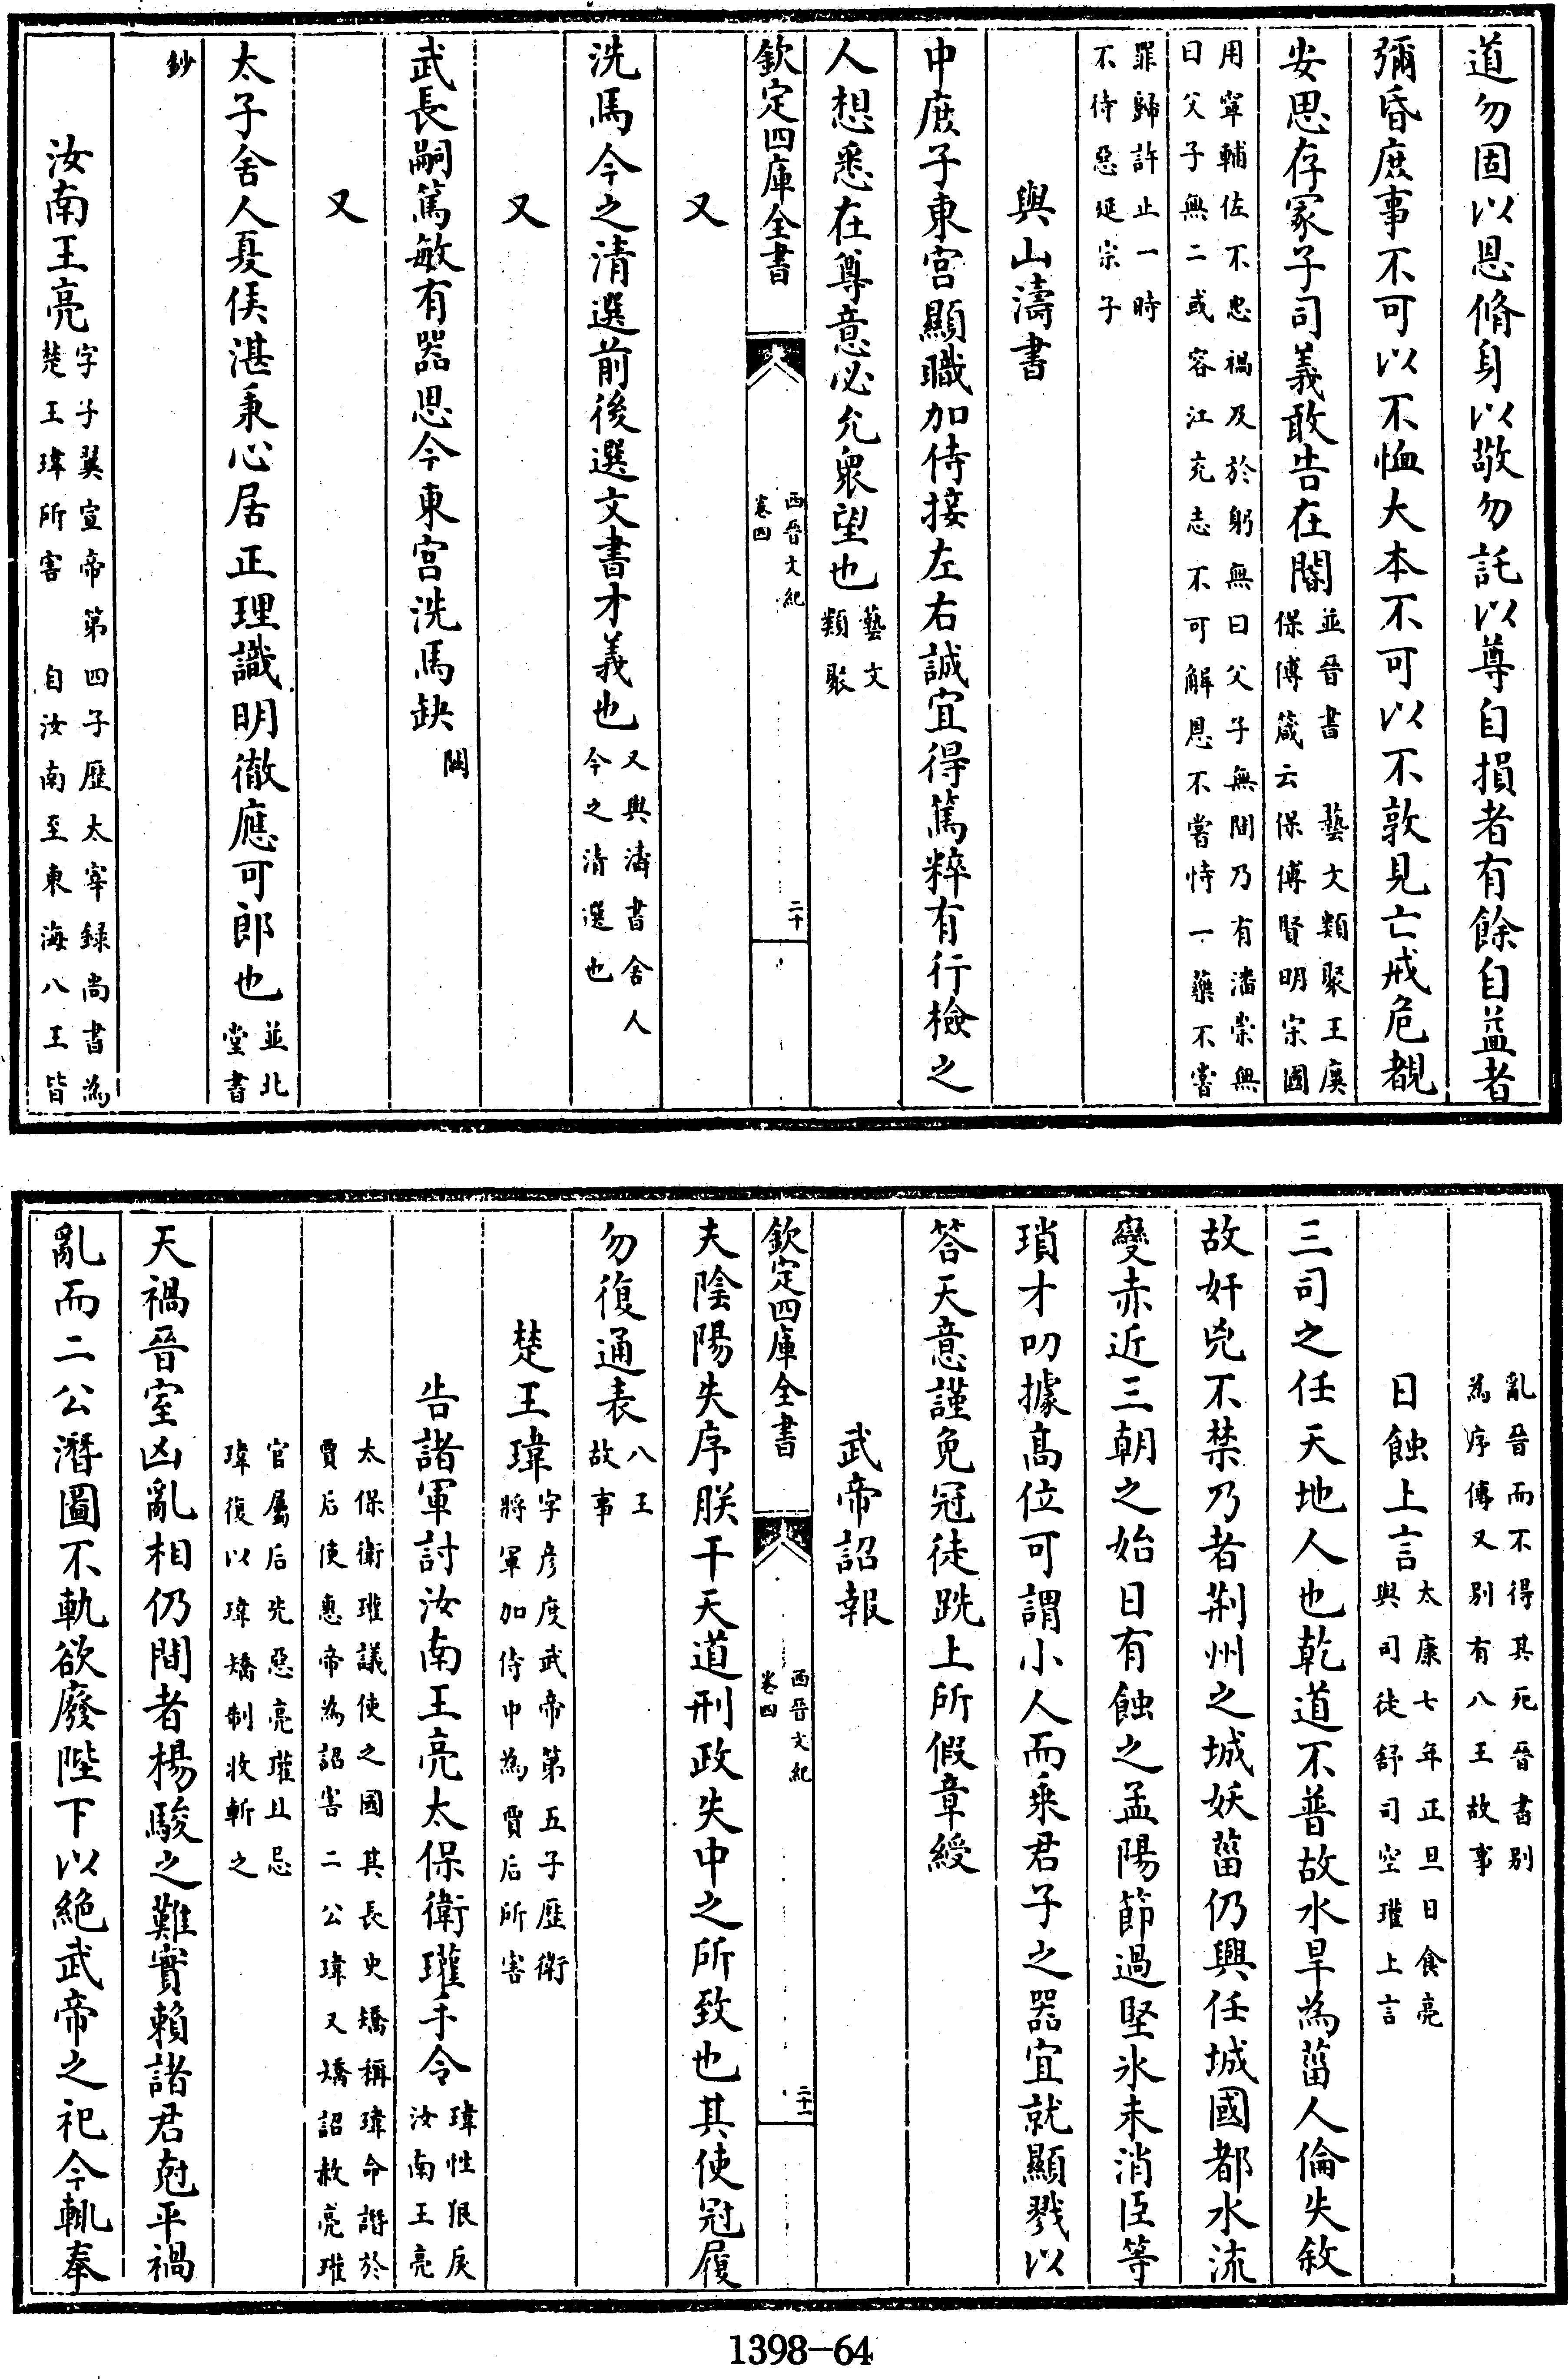 道勿固以恩脩身以敬勿託以尊自損者有餘自益者
彌昏庶事不可以不恤大本不可以不敦見亡戒危覩
安思存冡子司義敢告在閽並晉書　藝文類聚王廙
保傅箴云保傅賢明宗國
用寧輔佐不忠禍及於躬無曰父子無間乃有潘崇無
曰父子無二或容江充志不可解恩不嘗恃一藥不嘗
罪歸許止一時
不侍惡延宗子
與山濤書
中庶子東宮顯職加侍接左右誠宜得篤粹有行檢之
人想悉在尊意必允衆望也藝文
類聚
欽定四庫全書
西晉文紀
卷四
二十
又
洗馬今之清選前後選文書才義也又與濤書舍人
今之清選也
又
武長嗣篤敏有器思今東宮洗馬缺闕
又
太子舍人夏侯湛秉心居正理識明徹應可郎也並北
堂書
鈔
汝南王亮字子翼宣帝第四子歷太宰録尚書為
楚王瑋所害　自汝南至東海八王皆
亂晉而不得其死晉書别
為序傳又别有八王故事
日蝕上言太康七年正旦日食亮
與司徒舒司空瓘上言
三司之任天地人也乾道不普故水旱為菑人倫失敘
故奸兇不禁乃者荆州之城妖菑仍興任城國都水流
變赤近三朝之始日有蝕之孟陽節過堅氷未消臣等
瑣才叨據高位可謂小人而乘君子之器宜就顯戮以
答天意謹免冠徒跣上所假章綬
武帝詔報
欽定四庫全書
西晉文紀
卷四
二十一
夫陰陽失序朕干天道刑政失中之所致也其使冠履
勿復通表八王
故事
楚王瑋字彦度武帝第五子歷衛
將軍加侍中為賈后所害
告諸軍討汝南王亮太保衛瓘手令瑋性狠戾
汝南王亮
太保衛瓘議使之國其長史矯稱瑋命譖於
賈后使惠帝為詔害二公瑋又矯詔赦亮瓘
官屬后先惡亮瓘且忌
瑋復以瑋矯制收斬之
天禍晉室凶亂相仍間者楊駿之難實賴諸君尅平禍
亂而二公潛圖不軌欲廢陛下以絶武帝之祀今輒奉
1398-64